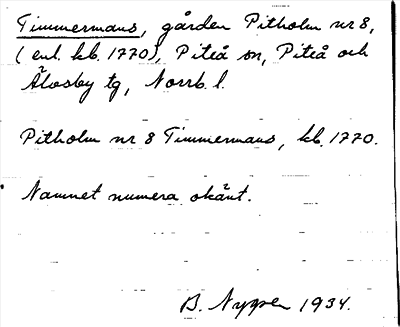 Timmermans, gården Pitholm nr 8,
(enl. kb. 1770), Piteå sn, Piteå och
Älvsby tg, Norrb. l.
Pitholm nr 8 Timmermans, kb. 1770.
Namnet numera okänt.
B. Nygren 1934.